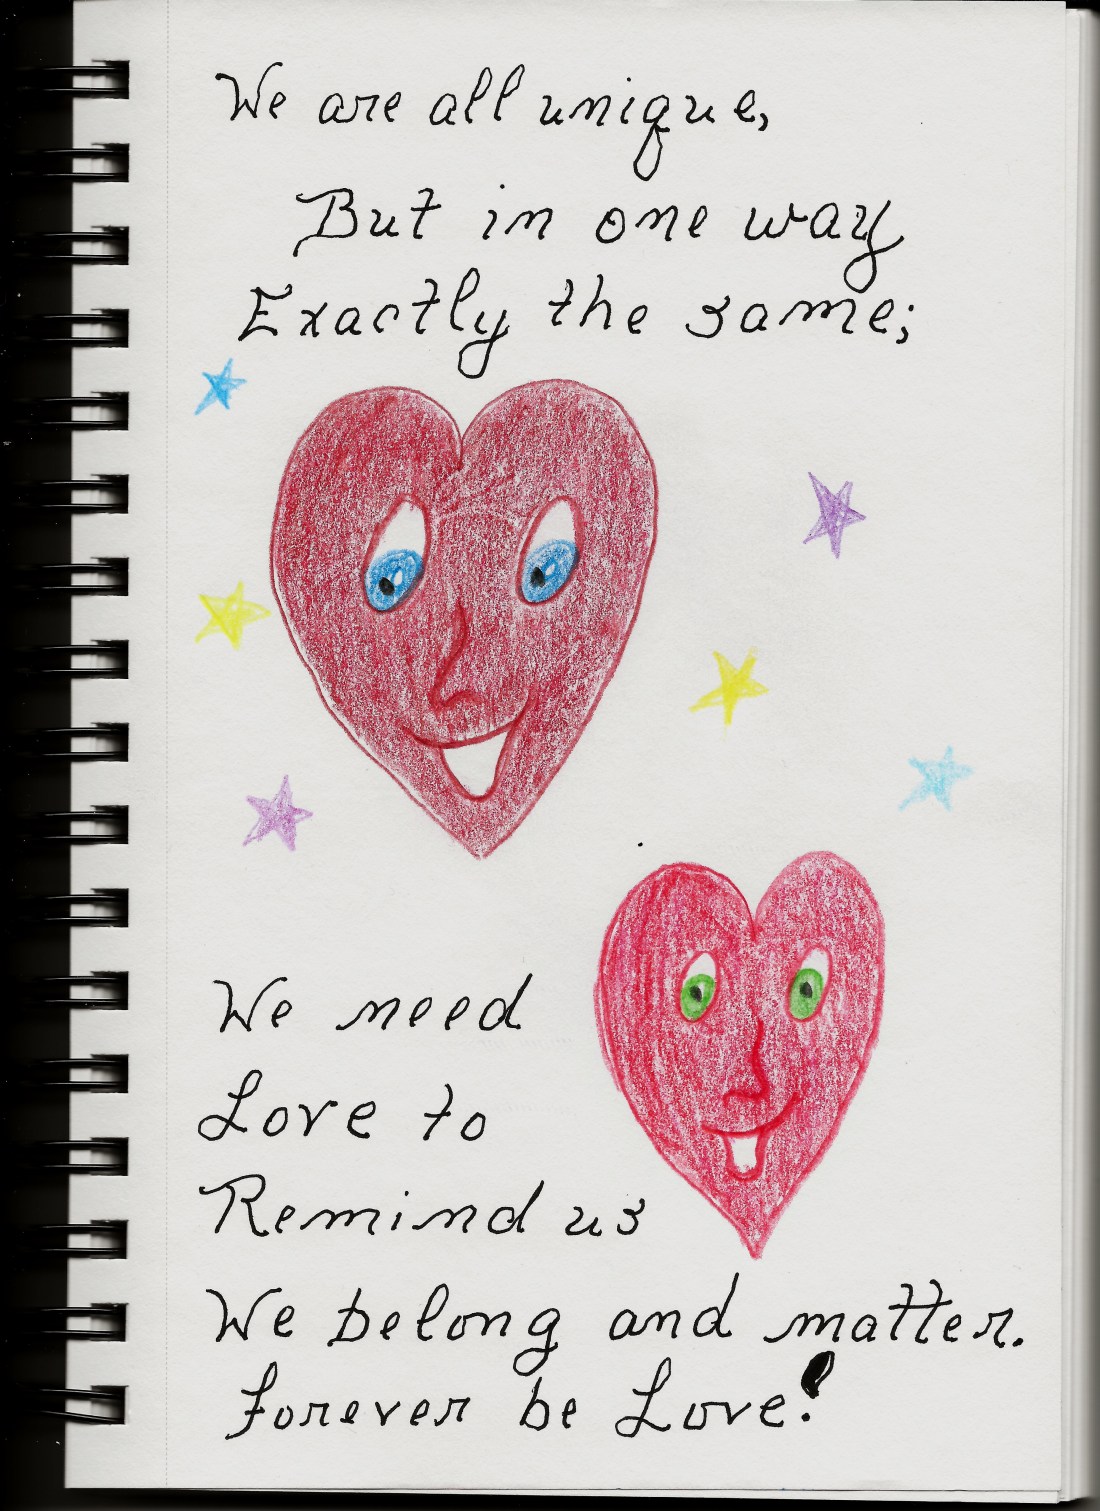 We are all unique,
But in one way
Exactly the same;
We need
Love to
Remind us
We belong and matter.
Forever be Love!